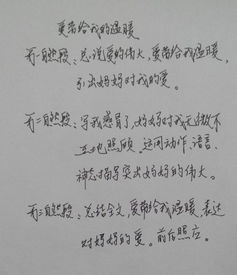 爱带给我的温暖
第一自然段：总说爱的伟大，爱带给我温暖，
引出妈妈对我的爱。
第二自然段：写我感冒了，妈妈对我无微不
至地照顾。运用动作、语言、
神态描写突出妈妈的伟大。
第三自然段：总结全文，爱带给我温暖，表达
对妈妈的爱。前后照应。